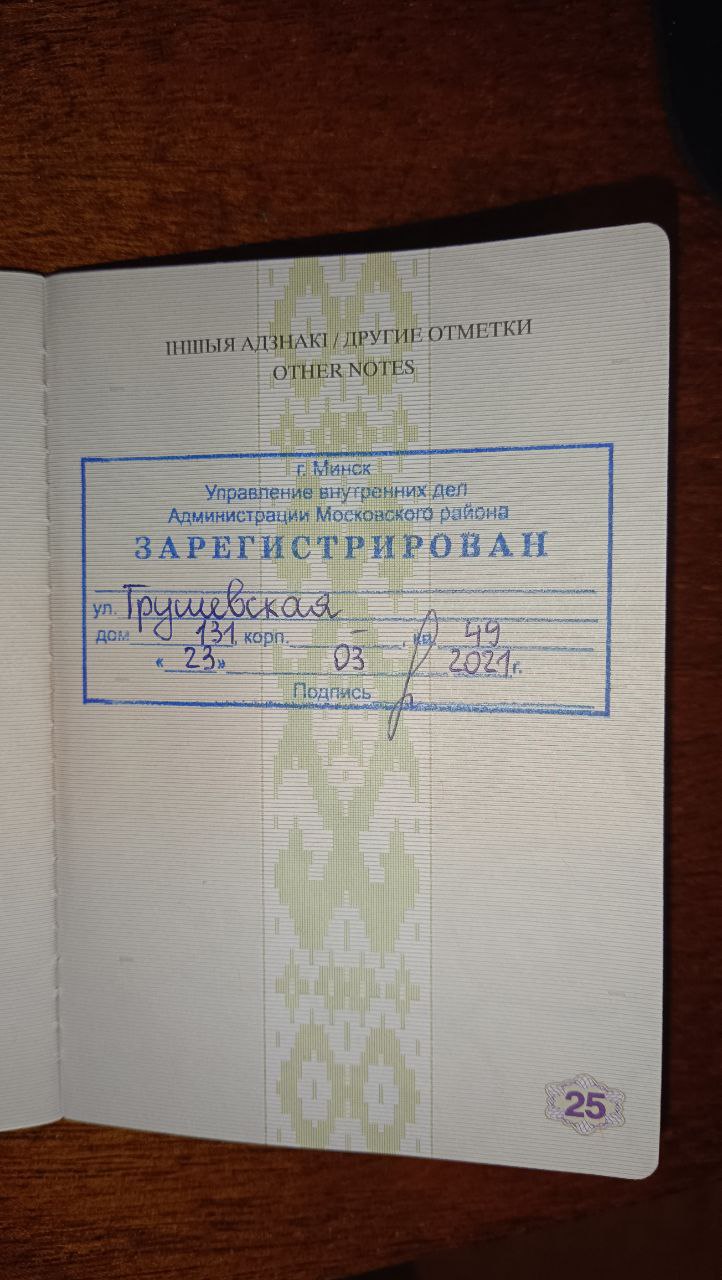 ІНШЫЯ АДЗНАКІ / ДРУГИЕ ОТМЕТКИ
OTHER NOTES
г. Минск
Управление внутренних дел
Администрации Московского района
ЗАРЕГИСТРИРОВАН
ул. Грушевская
дом 131, корп. – , кв. 49
« 23 » 03 2021 г.
Подпись
25